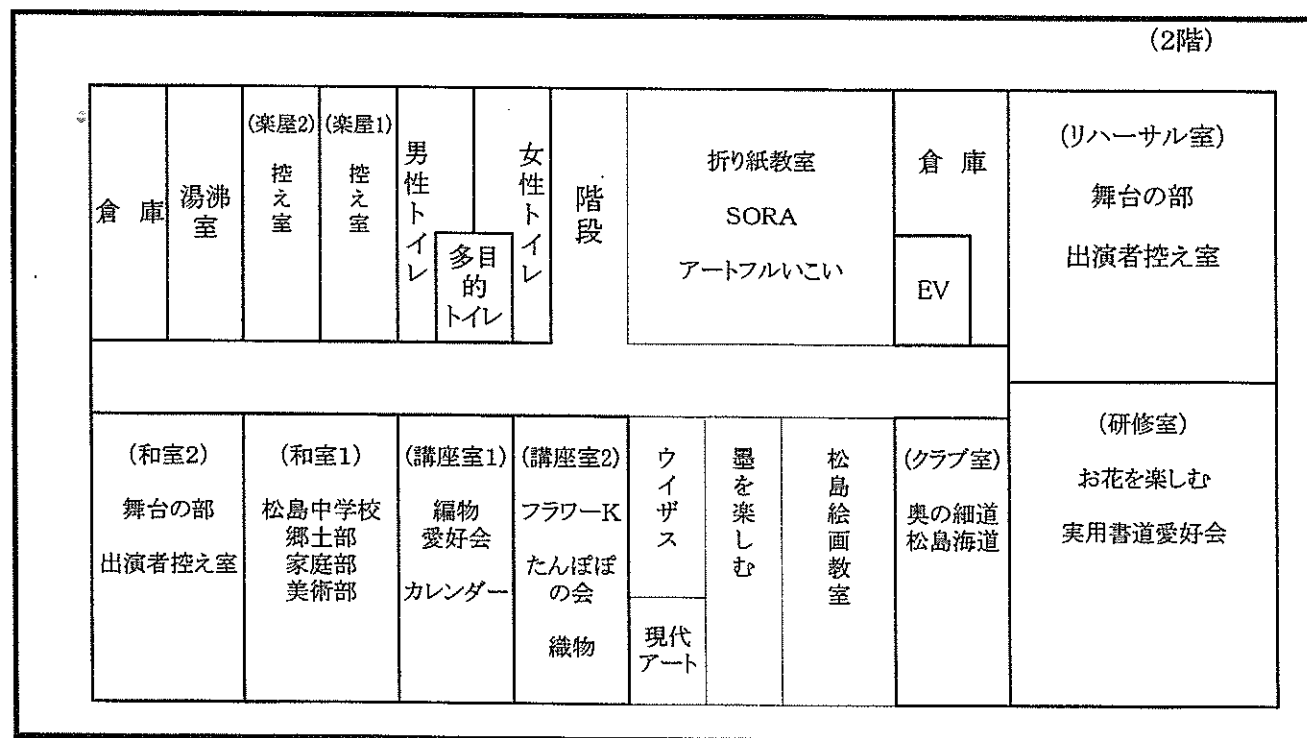 (2階)
倉 庫
湯沸
室
(楽屋2)
控え室
(楽屋1)
控え室
男性トイレ
多目
的
トイレ
女性トイレ
階段
折り紙教室
SORA
アートフルいこい
倉 庫
EV
(リハーサル室)
舞台の部
出演者控え室
(和室2)
舞台の部
出演者控え室
(和室1)
松島中学校
郷土部
家庭部
美術部
(講座室1)
編物
愛好会
カレンダー
(講座室2)
フラワーK
たんぽぽ
の会
織物
ウイザス
現代
アート
墨を楽しむ
松島絵画教室
(クラブ室)
奥の細道
松島海道
(研修室)
お花を楽しむ
実用書道愛好会